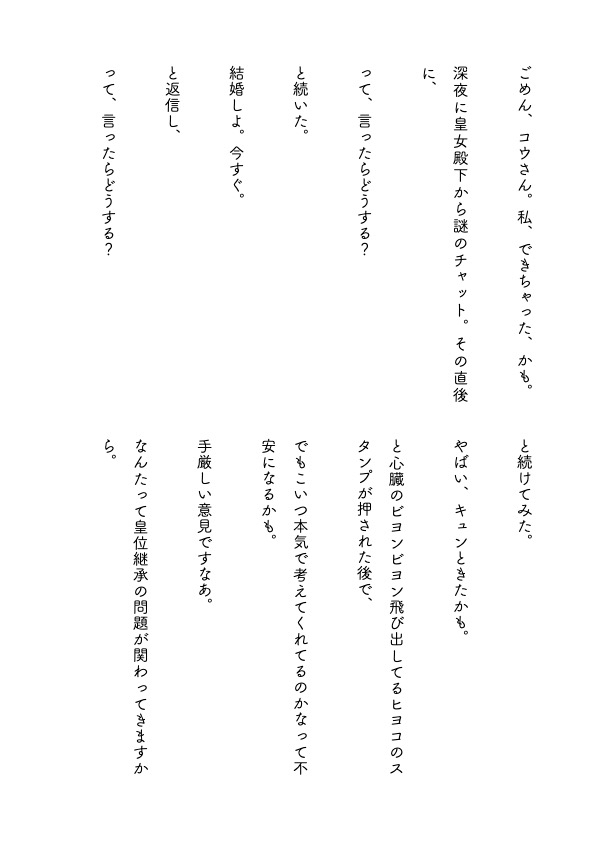 ごめん、コウさん。私、できちゃった、かも。
深夜に皇女殿下から謎のチャット。その直後
に、
って、言ったらどうする？
と続いた。
結婚しよ。今すぐ。
と返信し、
って、言ったらどうする？
と続けてみた。
やばい、キュンときたかも。
と心臓のビヨンビヨン飛び出してるヒヨコのス
タンプが押された後で、
でもこいつ本気で考えてくれてるのかなって不
安になるかも。
手厳しい意見ですなあ。
なんたって皇位継承の問題が関わってきますか
ら。